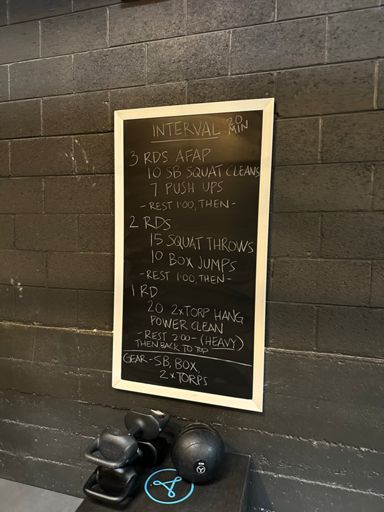 INTERVAL 20 MIN
3 RDS AFAP
10 SB SQUAT CLEANS
7 PUSH UPS
- REST 1:00, THEN -
2 RDS
15 SQUAT THROWS
10 BOX JUMPS
- REST 1:00, THEN -
1 RD
20 2xTORP HANG
POWER CLEAN
- REST 2:00 - (HEAVY)
THEN BACK TO TOP
GEAR - SB, BOX,
2xTORPS